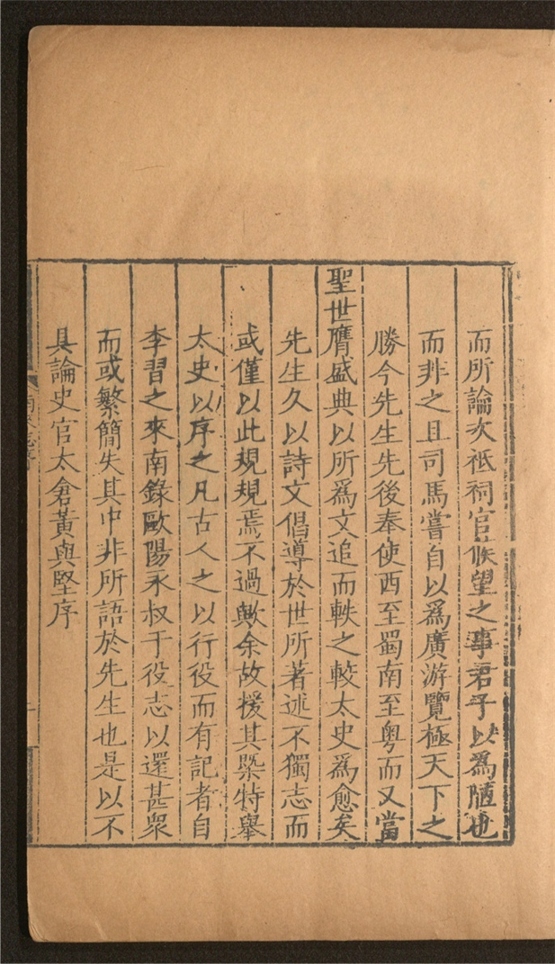 而所論次祗祠官候望之事君子以為陋也
而非之且司馬嘗自以為廣游覽極天下之
勝今先生先後奉使西至蜀南至粵而又當
聖世膺盛典以所為文追而軼之較太史為愈矣
先生久以詩文倡導於世所著述不獨志而
或僅以此規規焉不過歟余故援其槩特舉
太史以序之凡古人之以行役而有記者自
李習之來南錄歐陽永叔于役志以還甚衆
而或繁簡失其中非所語於先生也是以不
具論史官太倉黃與堅序